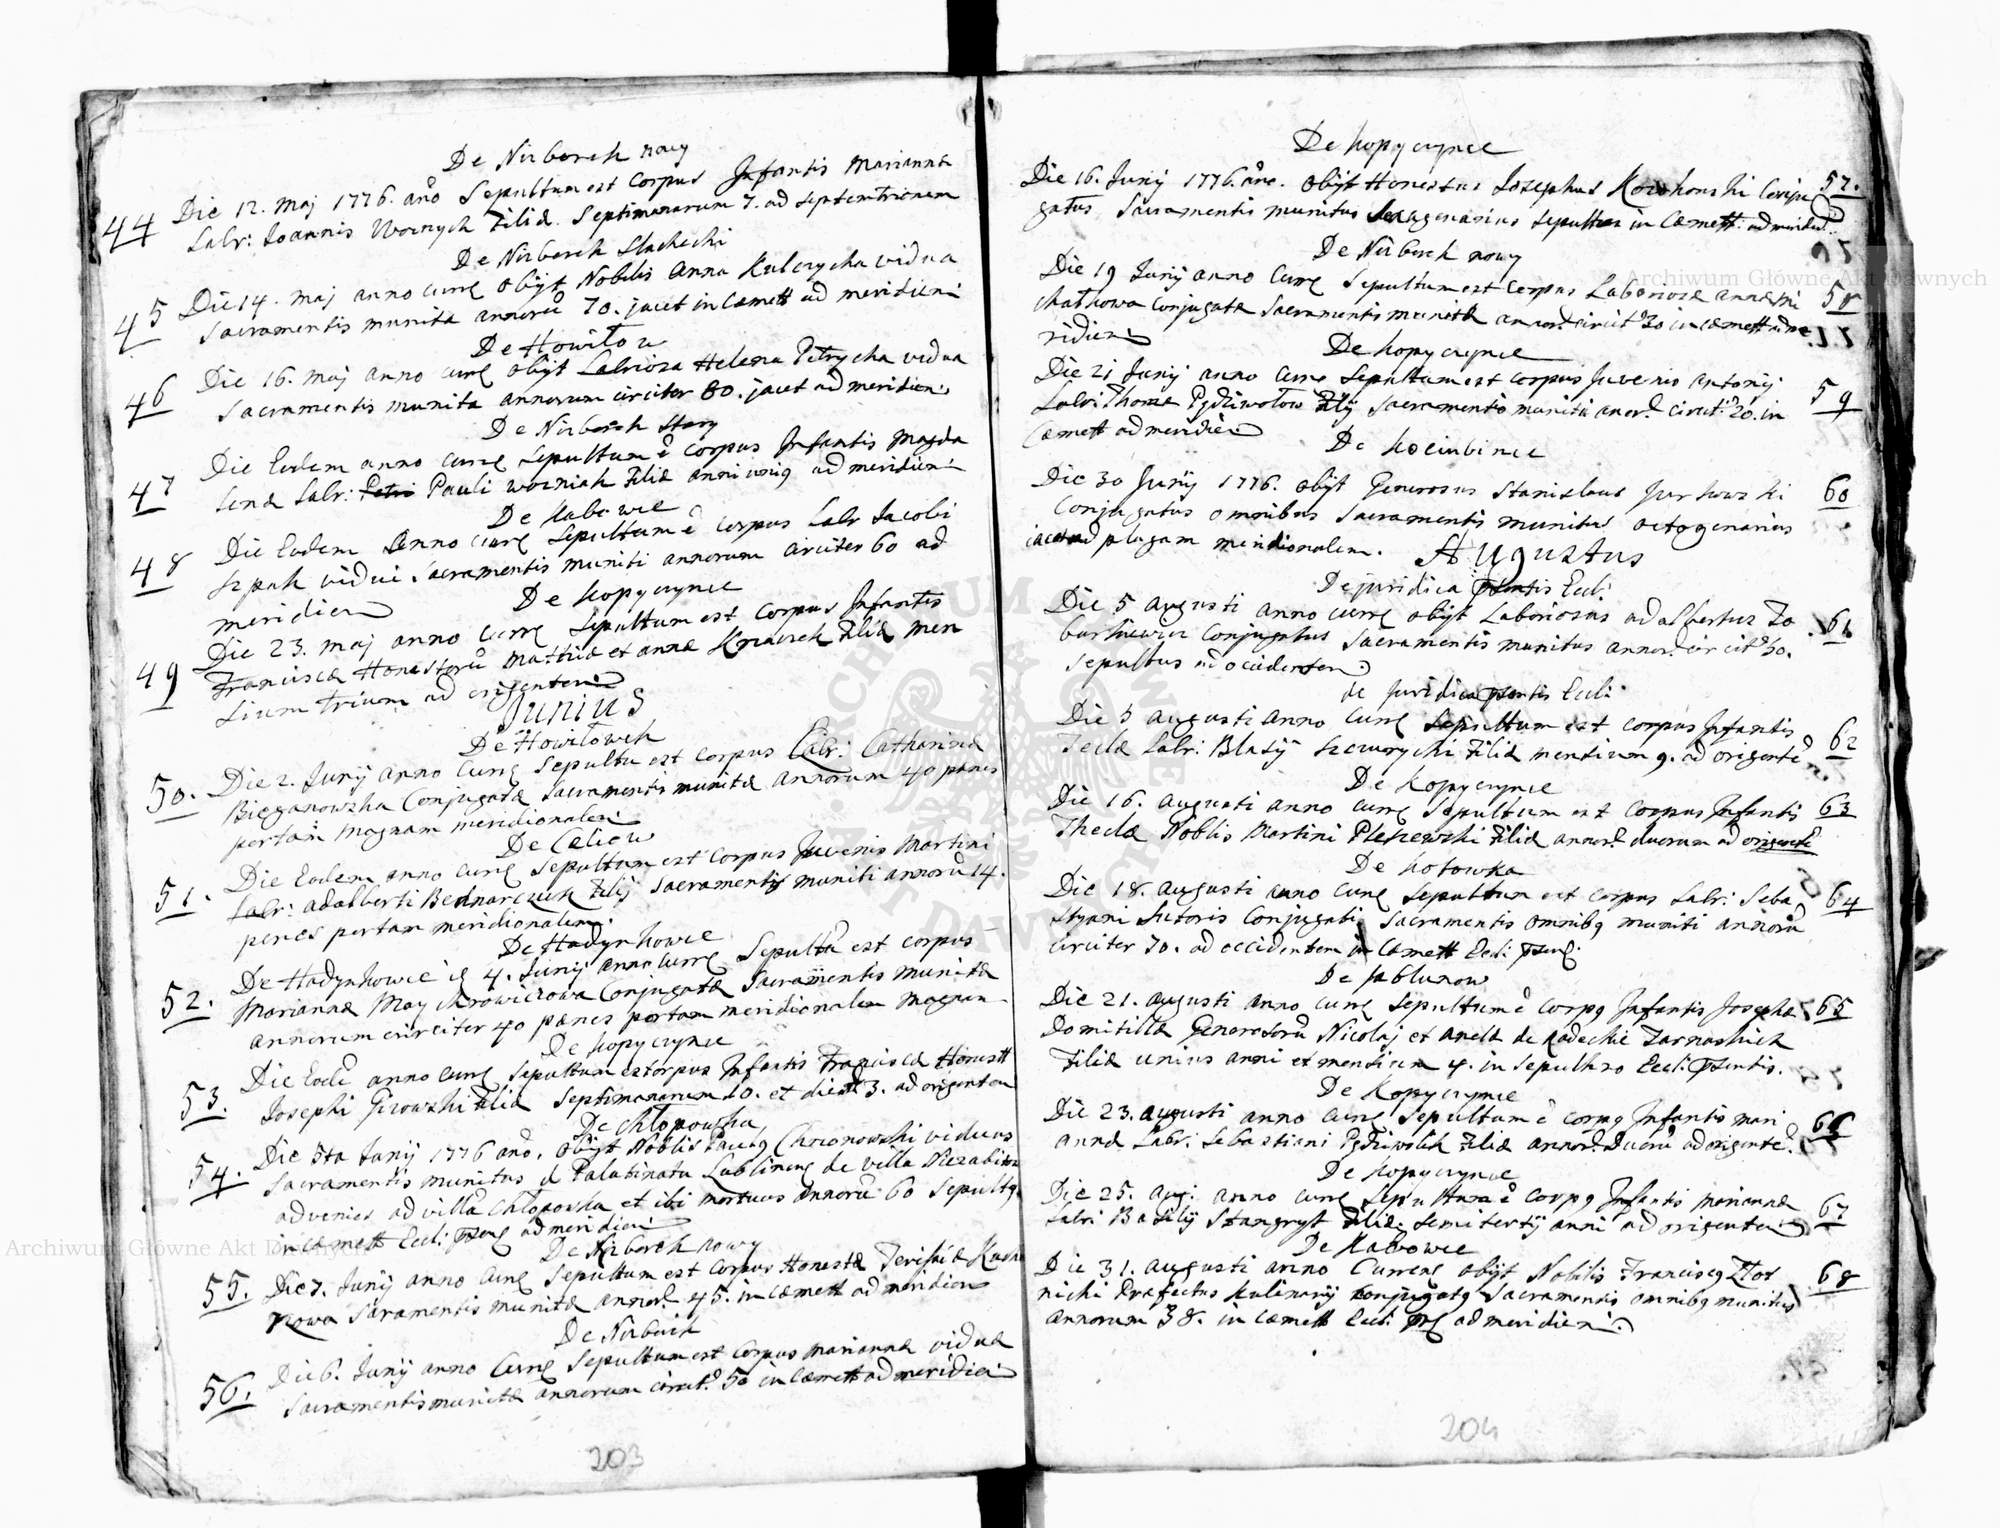 De Nirborek nowy
44 Die 12. Maj 1776. año Sepultum est Corpus Infantis Mariannæ
Labr: Joannis Woznych Filiæ Septimanarum 7. ad Septemtrionem
De Nirborek Slachecki
45 Die 14. Maj anno curr obijt Nobilis Anna Kulczycka vidua
Sacramentis munita annorū 70. jacet in Cæmett ad meridiem
De Howilow
46 Die 16. Maj anno curr obijt Labrioza Helena Petrycha vidua
Sacramentis munita annorum circiter 80. jacet ad meridiem
De Nirborek Stary
47 Die Eodem anno curr Sepultum ē Corpus Infantis Magda
lenæ Labr: Petri Pauli Wozniak Filiæ anni uniq ad meridiem
De Kabowce
48 Die Eodem Anno curr Sepultum ē Corpus Labr Jacobi
Szpak vidui Sacramentis muniti annorum circiter 60 ad
meridiem
De Kopyczynce
49 Die 23. Maj anno Curr Sepultum est Corpus Infantis
Franciscæ Honestorū Mathiæ et Annæ Filiæ men
sium trium ad orientem
Junius
De Howilowek
50. Die 2. Junij anno Curr Sepultū est Corpus Labr: Catharinæ
Bieganowska Conjugatæ Sacramentis munitæ annorum 40 penes
portam magnam meridionalem
De Celiew
51. Die Eodem anno curr Sepultum est Corpus Juvenis Martini
Labr: Adalberti Bednarczuk Filij Sacramentis muniti annorū 14.
penes portam meridionalem.
De Hadynkowce
52. De Hadynkowce 4. Junij anno curr Sepultū est corpus
Mariannæ Conjugatæ Sacramentis munitæ
annorum circiter 40 penes portam meridionalem magnam
De Kopyczynce
53. Die Eodē anno curr Sepultum est corpus Infantis Franciscæ Honestt
Josephi Girowski Filiæ Septimanarum 10. et dierū 3. ad orientem
De Chlopowka
54. Die 5ta Junij 1776 año. obijt Noblis Paulq Chrzonowski viduus
Sacramentis munitus d Palatinatu Lublinens de villa
advenies ad villā Chlopowka et ibi mortuus annorū 60 Sepultq
in Cæmett Eccl: ad meridiem
De Nirborek nowy
55. Die 7. Junij anno Curr Sepultum est Corpus Honestæ
Sacramentis munitæ annor 45. in Cæmett ad meridiem
De Nirborek
56. Die 6. Junij anno Curr Sepultum est Corpus Mariannæ viduæ
Sacramentis munitæ annorum circit 50 in Cæmett ad meridiem
203
De Kopyczynce
Die 16. Junij 1776. ano. obijt Honestus Josephus Conju 57.
gatus Sacramentis munitus Sexagenarius Sepultus in Cæmett. ad meridiē.
De Nirborek nowy
Die 19 Junij anno Curr Sepultum est Corpus Laboriosæ Annæ 58
Conjugatæ Sacramentis munitæ annor circit 30 in Cæmett ad me
ridiem
De Kopyczynce
Die 21 Junij anno Curr Sepultum est Corpus Juvenis Antonij 59
Labri Thomæ Filij Sacramentis muniti anor circit 20. in
Cæmett ad meridiem
De Kociubince
Die 30 Junij 1776. obijt Generosus Stanislaus Jurkowski 60
Conjugatus omnibus Sacramentis munitus octogenarius
jacet ad plagam meridionalem.
Augustus
De juridica Eccl:
Die 5 Augusti anno Curr obijt Laboriosus Adalbertus 61
Conjugatus Sacramentis munitus annor circit 30.
Sepultus ad occidentem
de Juridica Eccl:
Die 5 Augusti anno Curr Sepultum est corpus Infantis 62
Teclæ Labr: Blasij Filiæ mensium 9. ad orientē
De Kopyczynce
Die 16. Augusti anno curr Sepultum est Corpus Infantis 63
Theclæ Noblis Martini Pleszewski Filiæ annor duorum ad orientē
De Kotowka
Die 18. Augusti anno Curr Sepultum est corpus Labr: Seba 64
styani Sutoris Conjugati Sacramentis omnibq muniti annorū
circiter 70. ad occidentem in Cæmett Eccl:
De Jablunow
Die 21. Augusti anno curr Sepultum ē Corpq Infantis Josephæ 65
Domitillæ Generosorū Nicolaj et Anelæ de Radeckie Tarnawskich
Filiæ unius anni et mensium 4. in Sepulchro Eccl:
De Kopyczynce
Die 23. Augusti anno Curr Sepultum ē corpq Infantis Mari 66
annæ Labr: Sebastiani Filiæ annor. Duorū ad orientē.
De Kopyczynce
Die 25. Aug: anno curr Sepultum ē Corpq Infantis Mariannæ 67
Labri Basilij Stangryt Filiæ. Semitertij anni ad orientem
De Kabowce
Die 31. Augusti anno Currens obijt Nobilis Franciscq Zlot 68
nicki Præfectus Kulinarij Conjugatq Sacramentis omnibq munitus
annorum 38. in Cæmett Eccl: ad meridiem
204
Archiwum Główne Akt Dawnych
Archiwum Główne Akt Dawnych